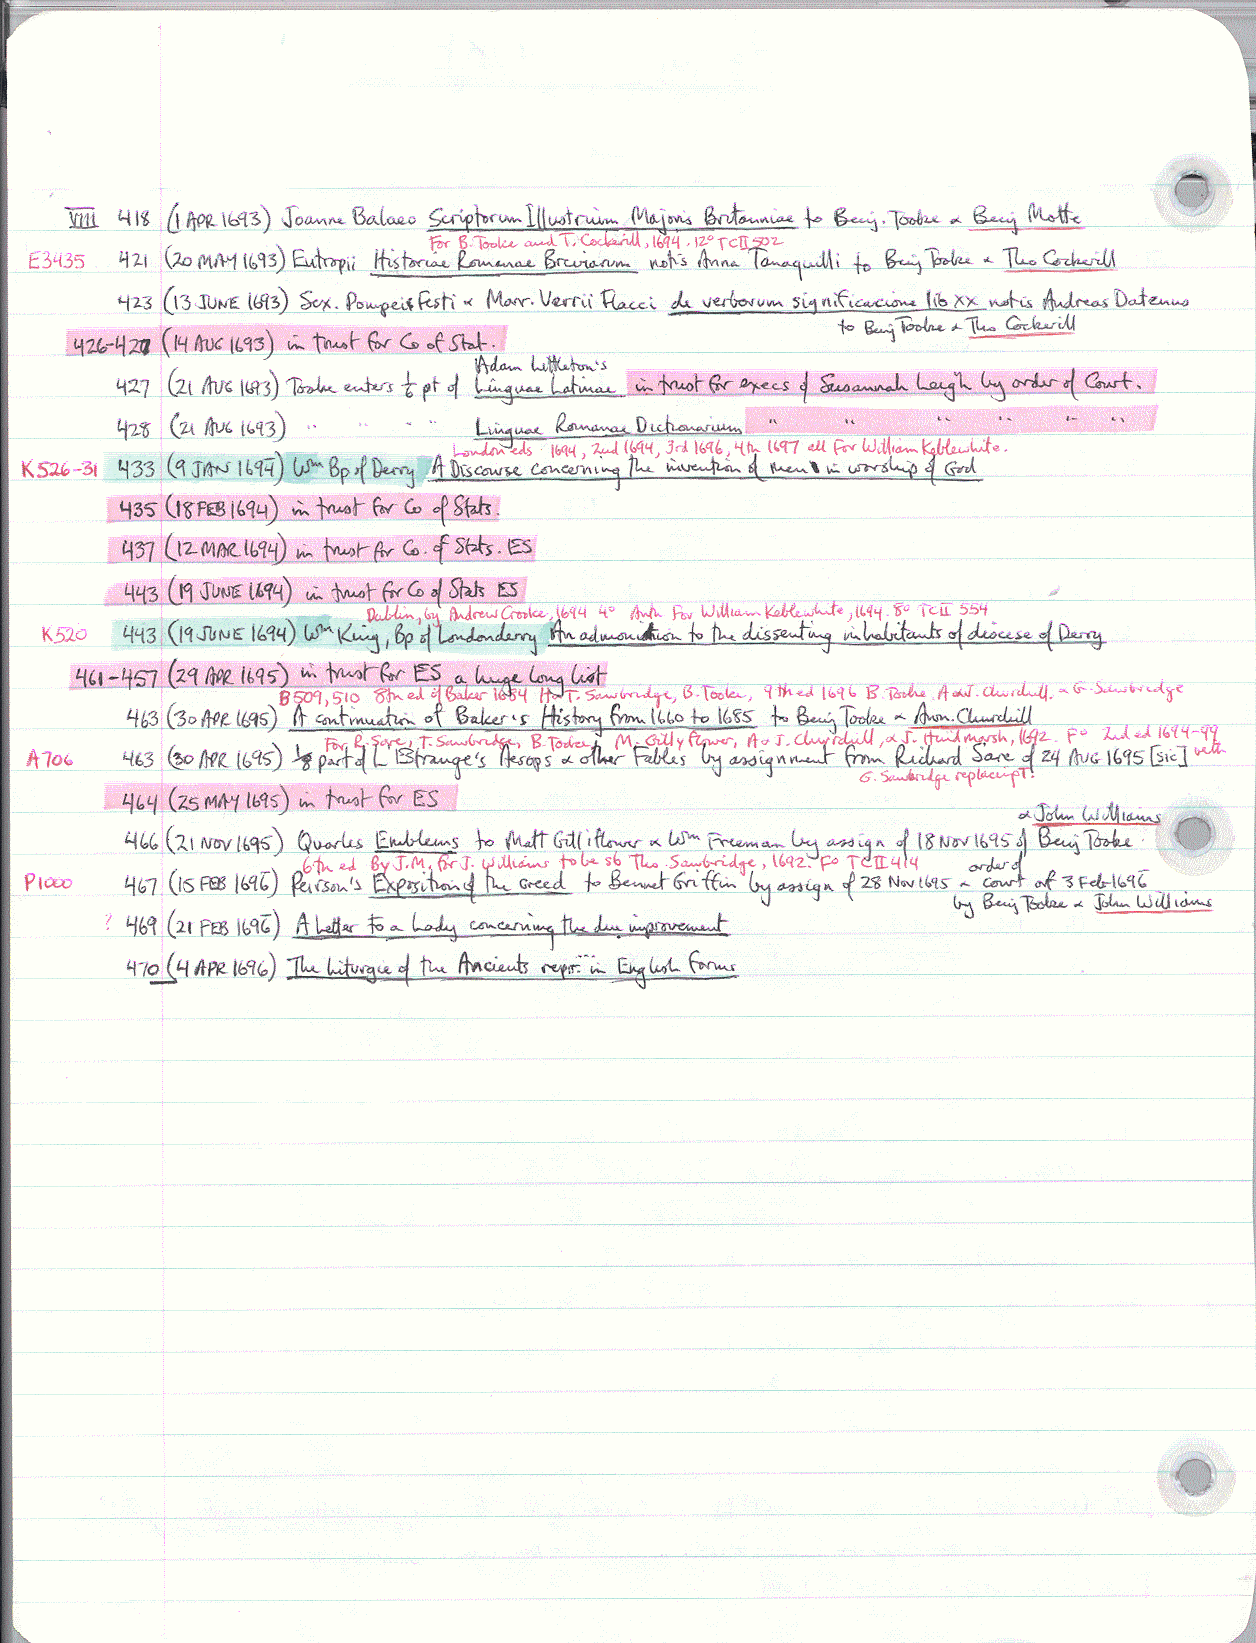 VIII 418 (1 APR 1693) Joanne Balaeo Scriptorum Illustrium Majoris Britanniae to Benj. Tooke & Benj Motte
For B. Tooke and T. Cockerill, 1694. 12° TCII 502
E3435 421 (20 MAY 1693) Eutropii Historiae Romanae Breviarum notis Anna Tanaquilli to Benj Tooke & Tho Cockerill
423 (13 JUNE 1693) Sex. Pompeii Festi & Marr. Verrii Flacci de verborum significacione lib xx notis Andreas Datenus
to Benj Tooke & Tho Cockerill
426-427 (14 AUG 1693) in trust for Co of Stat.
Adam Littleton's
427 (21 AUG 1693) Tooke enters ½ pt of Linguae Latinae in trust for execs of Susannah Leigh by order of Court.
428 (21 AUG 1693) " " " " Linguae Romanae Dictionarium " " " " "
London eds 1694, 2nd 1694, 3rd 1696, 4th 1697 all For William Keblewhite.
K526-31 433 (9 JAN 1694) Wm Bp of Derry A Discourse concerning the invention of men in worship of God
435 (18 FEB 1694) in trust for Co of Stats.
437 (12 MAR 1694) in trust for Co. of Stats. ES
443 (19 JUNE 1694) in trust for Co of Stats ES
Dublin, by Andrew Crooke, 1694 4° Anr. For William Keblewhite, 1694. 8° TCII 554
K520 443 (19 JUNE 1694) Wm King, Bp of Londonderry An admonition to the dissenting inhabitants of diocese of Derry
461-457 (29 APR 1695) in trust for ES a huge long list
B509, 510 8th ed of Baker 1684 H & T. Sawbridge, B. Tooke, 9th ed 1696 B. Tooke A & J. Churchill. & G. Sawbridge
463 (30 APR 1695) A continuation of Baker's History from 1660 to 1685 to Benj Tooke & Awn. Churchill
For R. Sare, T. Sawbridge, B. Tooke, M. Gillyflower, A & J. Churchill, & J. Hindmarsh, 1692. F° 2nd ed 1694-99
A706 463 (30 APR 1695) ⅛ part of L'Estrange's Aesops & other Fables by assignment from Richard Sare of 24 AUG 1695 [sic] with
G. Sawbridge replacing T.
464 (25 MAY 1695) in trust for ES
& John Williams
466 (21 NOV 1695) Quarles Emblems to Matt Gilliflower & Wm Freeman by assign of 18 NOV 1695 of Benj Tooke.
6th ed By J.M. for J. Williams to be sb Tho. Sawbridge, 1692. F° TCII 414 order of
P1000 467 (15 FEB 1696) Peirson's Exposition of the Creed to Bennet Griffin by assign of 28 Nov 1695 & court of 3 Feb 1696
by Benj Tooke & John Williams
? 469 (21 FEB 1696) A Letter to a Lady concerning the due improvement
470 (4 APR 1696) The Liturgie of the Ancients repr... in English forms